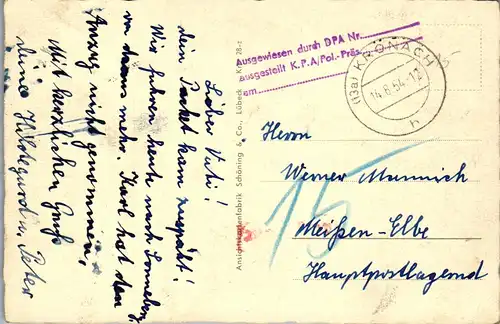 Lieber Vati!
dein Packet kam zuspät!
Wir fuhren heute nach Sonneberg
davon mehr. Karl hat den
Anzug nicht genommen,
Mit herzlichen Gruß
deine Hildegard u. Peter
Ansichtskartenfabrik Schöning & Co., Lübeck
Ausgewiesen durch DPA Nr.
ausgestellt K.P.A/Pol.-Präs.
am
(13a) KRONACH
14.6.54.-12
h
15
Herrn
Werner Munnich
Meißen-Elbe
Hauptpostlagernd